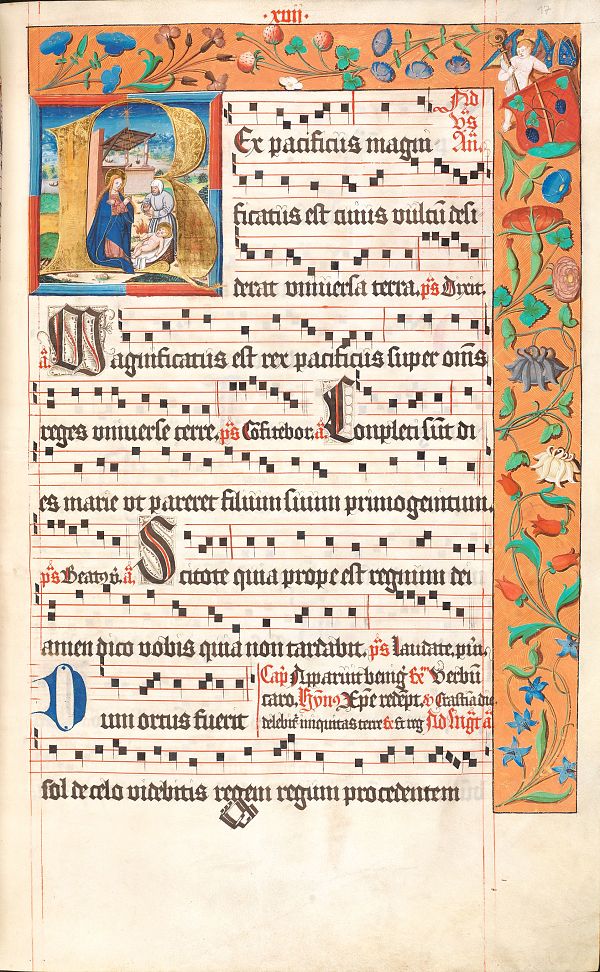 ·xvij·
17
Ad
vs̄
An̄.
Rex pacificus magni
ficatus est cuius vultū desi
derat vniuersa terra. ps̄ Dixit.
a̅ Magnificatus est rex pacificus super om̄s
reges vniuerse terre. ps̄ Cōfitebor. a̅ Conpleti sūt di
es marie vt pareret filium suum primogenitum.
ps̄ Beatꝰ v̄. a̅ Scitote quia prope est regnum dei
amen dico vobis quia non tardabit. ps̄ Laudate, pūi.
Cap̄ Apparuit benig̅ R̄ Verbū
caro. Hȳnꝰ Xp̄e redēpt. Crastīa die
Dum ortus fuerit delebit̄ iniquitas terre & Ad Mag̅ a̅
sol de celo videbitis regem regum procedentem